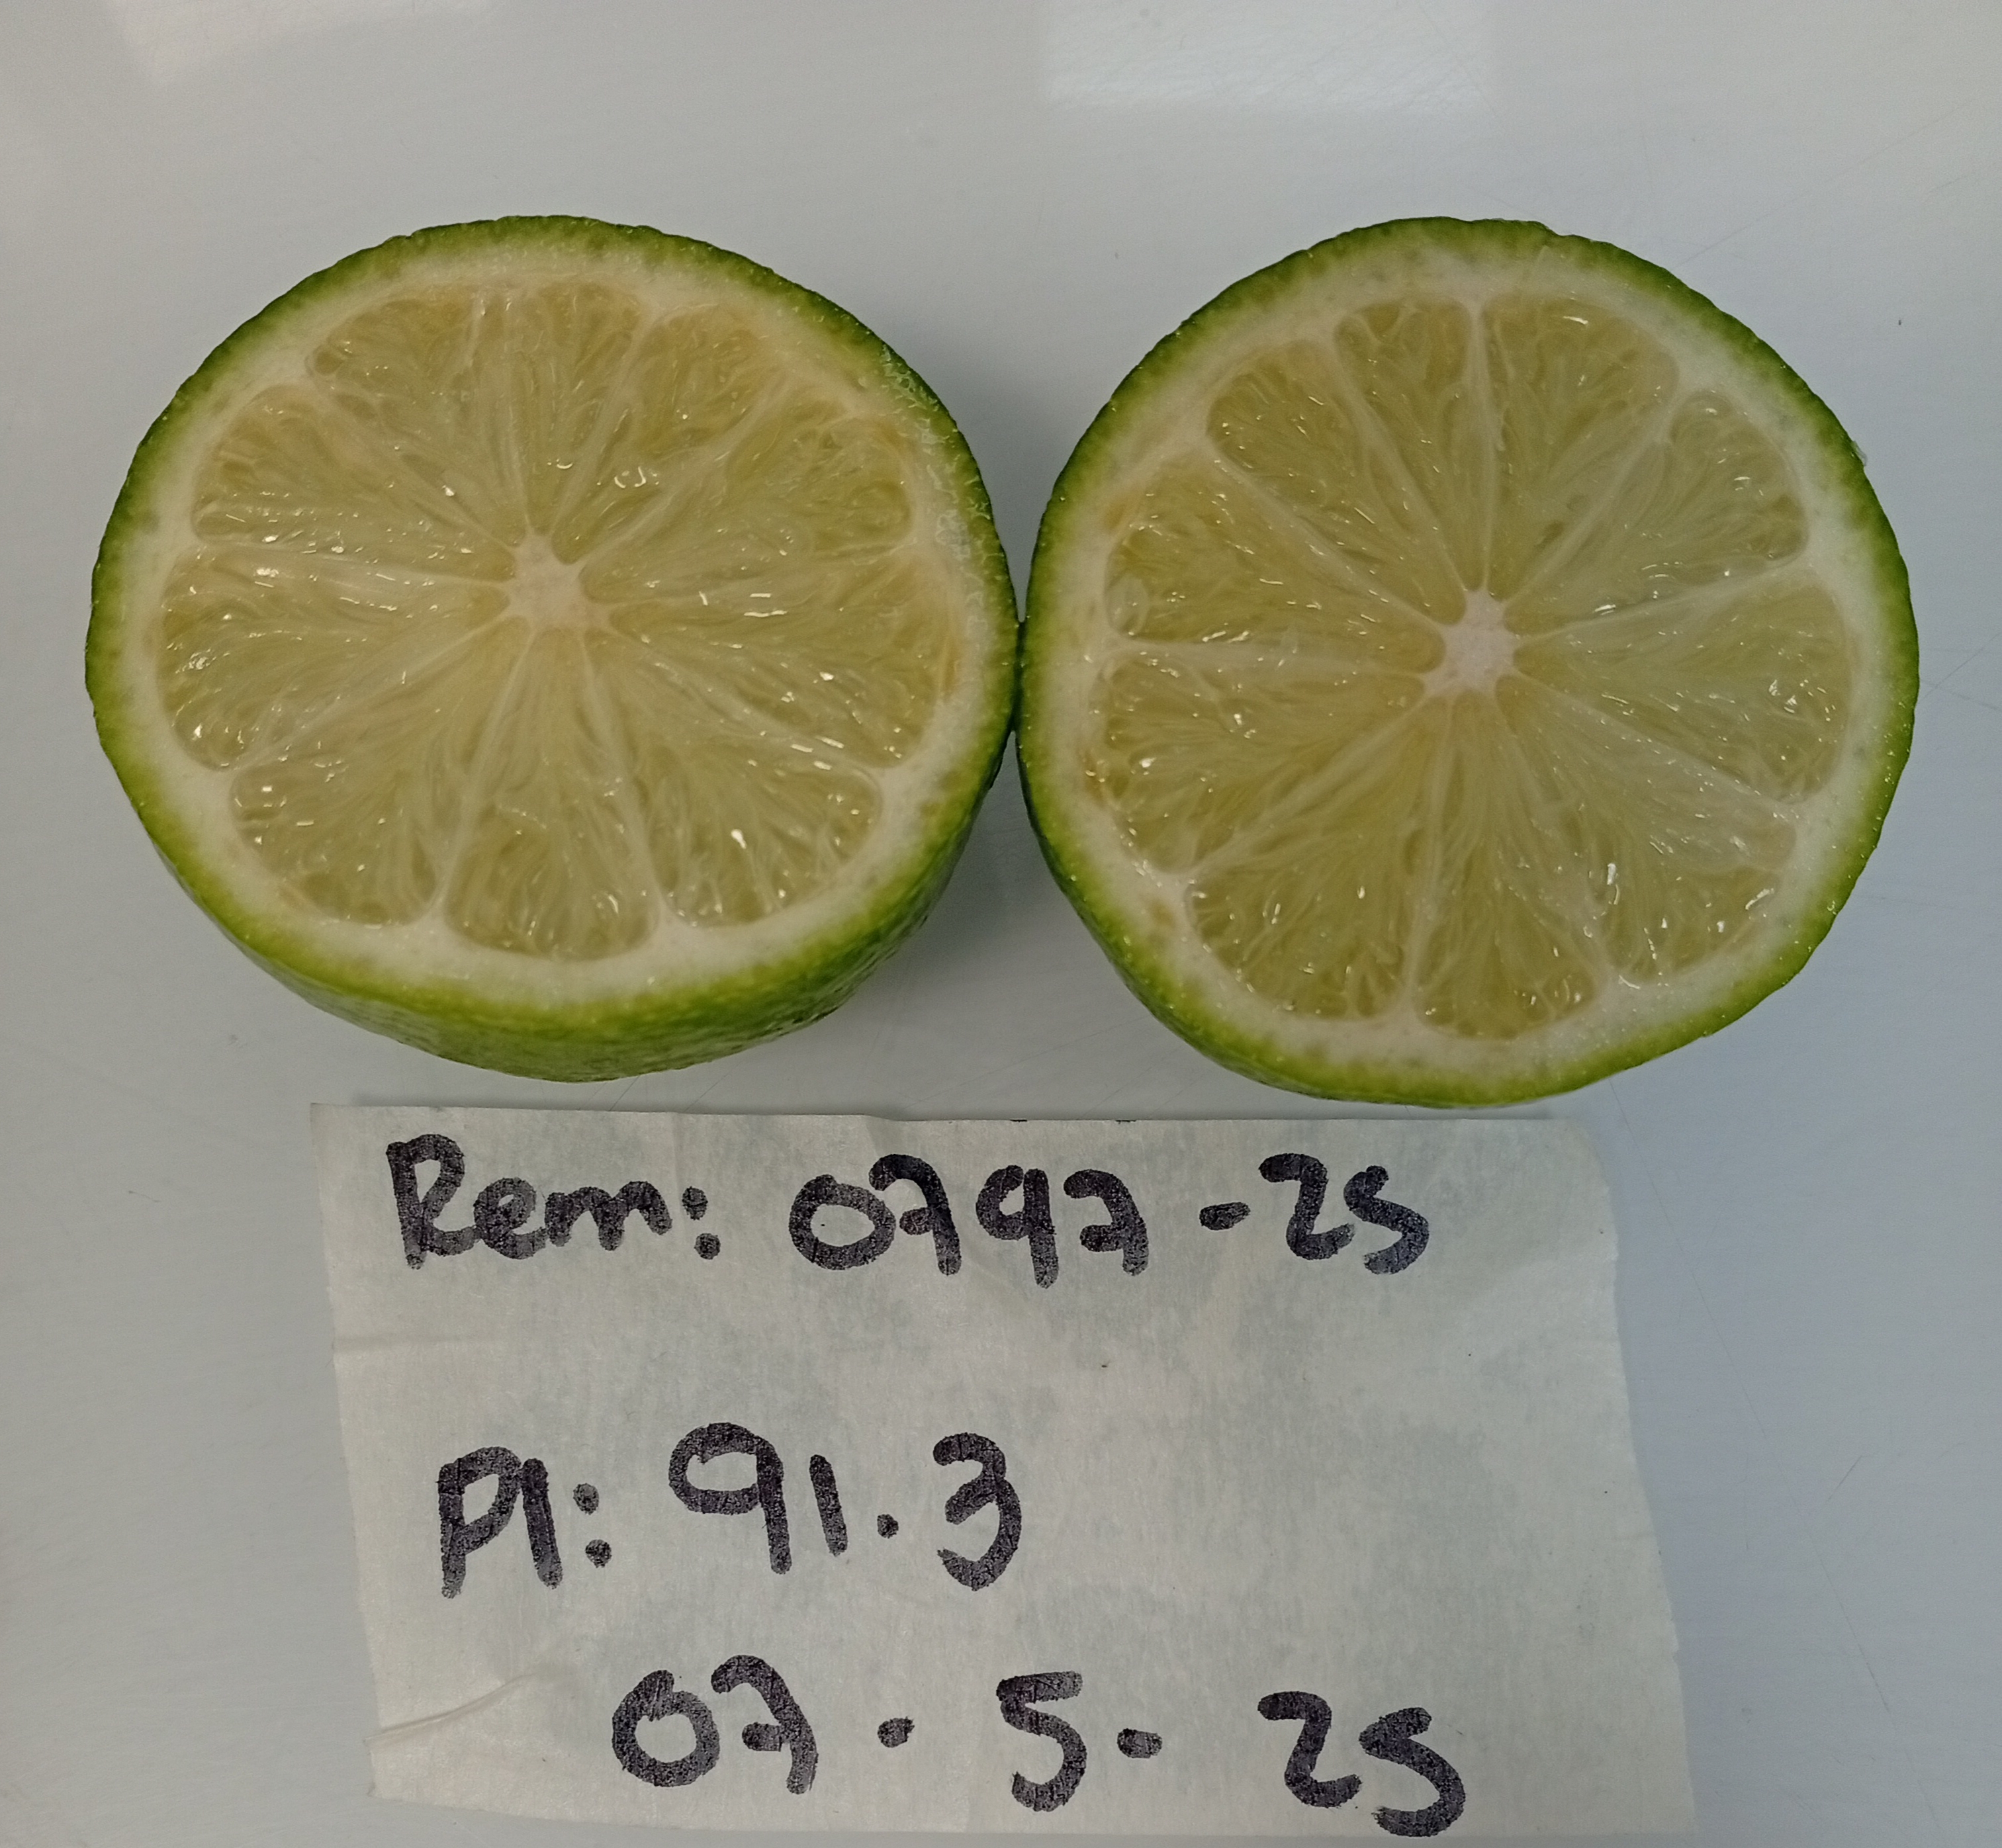 Rem: 0797-25
Pl: 91.3
07.5-25